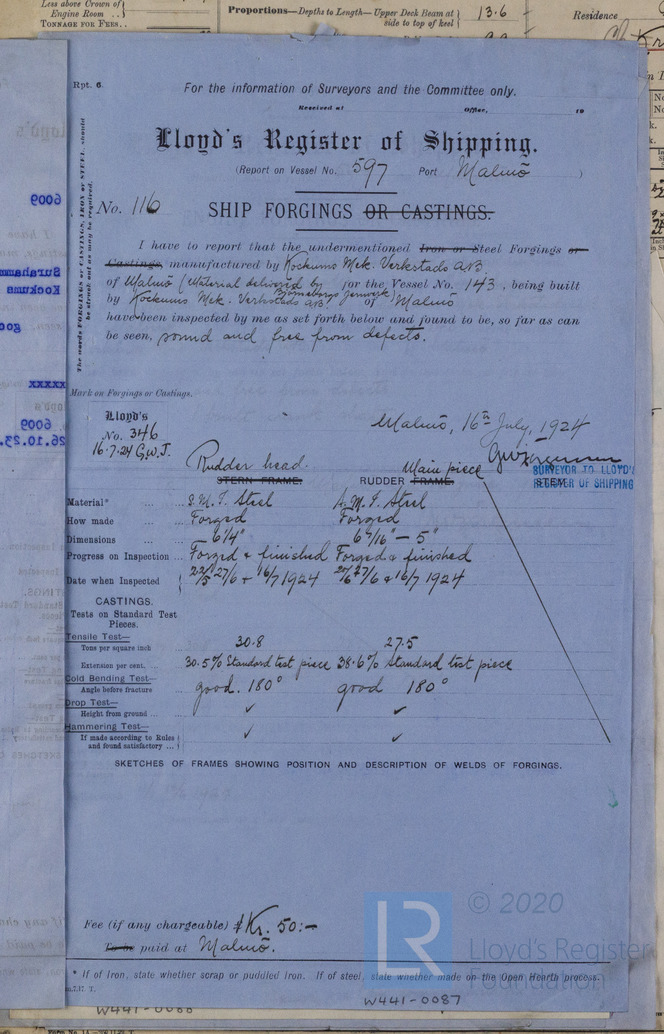 Less above Crown of
Engine Room ..
TONNAGE FOR FEES..
Proportions—Depths to Length—Upper Deck Beam at
side to top of keel
13.6
Residence
Rpt. 6.
For the information of Surveyors and the Committee only.
Received at Office, 19
Lloyd's Register of Shipping.
(Report on Vessel No. 597 Port Malmö )
No. 116
SHIP FORGINGS OR CASTINGS.
The words FORGINGS or CASTINGS, IRON or STEEL, should
be struck out as may be required.
I have to report that the undermentioned Iron or Steel Forgings or
Castings, manufactured by Kockums Mek. Verkstads A.B.
of Malmö (Material delivered by for the Vessel No. 143, being built
Björneborgs Jernverk
by Kockums Mek. Verkstads A.B. of Malmö
have been inspected by me as set forth below and found to be, so far as can
be seen, sound and free from defects.
Mark on Forgings or Castings.
Lloyd's
No. 346
16.7.24 G.W.J.
Malmö, 16th July, 1924
SURVEYOR TO LLOYD'S
REGISTER OF SHIPPING
Rudder head. Main piece
STERN FRAME. RUDDER FRAME. STEM.
Material* ... S.M.I. Steel S.M.I. Steel
How made ... Forged Forged
Dimensions ... 6¼" 6 7/16" — 5"
Progress on Inspection ... Forged & finished Forged & finished
Date when Inspected 22/5 27/6 + 16/7 1924 27/6 & 16/7 1924
CASTINGS.
Tests on Standard Test
Pieces.
Tensile Test—
Tons per square inch 30.8 27.5
Extension per cent. ... 30.5% Standard test piece 38.6% Standard test piece
Cold Bending Test—
Angle before fracture good. 180° good 180°
Drop Test—
Height from ground ... ✓ ✓
Hammering Test—
If made according to Rules
and found satisfactory ... ✓ ✓
SKETCHES OF FRAMES SHOWING POSITION AND DESCRIPTION OF WELDS OF FORGINGS.
Fee (if any chargeable) £ Kr. 50:—
To be paid at Malmö.
© 2020
LR
Lloyd's Register
Foundation
* If of Iron, state whether scrap or puddled Iron. If of steel, state whether made on the Open Hearth process.
m.7,17. T.
W441-0086
W441-0087